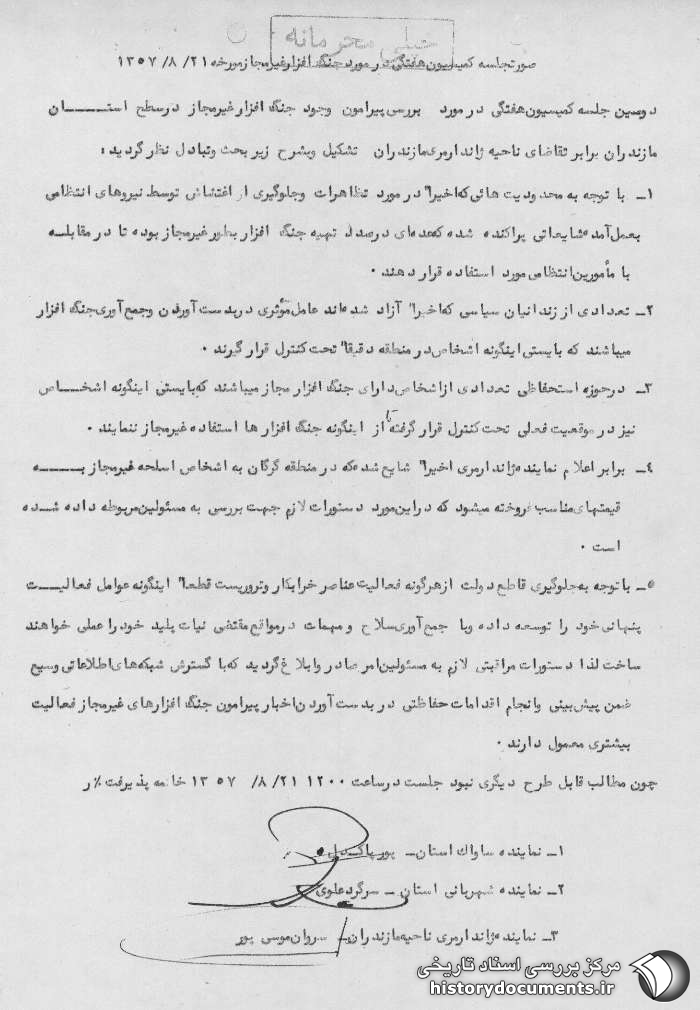 خیلی محرمانه
صورتجلسه کمیسیون هفتگی در مورد جنگ افزار غیر مجاز مورخه ۲۱/ ۸/ ۱۳۵۷
دومین جلسه کمیسیون هفتگی در مورد بررسی پیرامون وجود جنگ افزار غیر مجاز در سطح استــــان
مازندران برابر تقاضای ناحیه ژاندارمری مازندران تشکیل و بشرح زیر بحث و تبادل نظر گردید :
۱ـ با توجه به محدودیت هائی که اخیرا" در مورد تظاهرات وجلوگیری از اغتشاش توسط نیروهای انتظامی
بعمل آمده شایعاتی پراکنده شده که عده ای درصدد تهیه جنگ افزار بطور غیر مجاز بوده تا در مقابلـه
با مأمورین انتظامی مورد استفاده قرار دهند .
۲ـ تعدادی از زندانیان سیاسی که اخیرا" آزاد شده اند عامل مؤثری در بدست آوردن وجمع آوری جنگ افزار
میباشند که بایستی اینگونه اشخاص در منطقه دقیقا" تحت کنترل قرار گیرند .
۳ـ در حوزه استحفاظی تعدادی از اشخاص دارای جنگ افزار مجاز میباشند که بایستی اینگونه اشخـــاص
نیز در موقعیت فعلی تحت کنترل قرار گرفته تا از اینگونه جنگ افزار ها استفاده غیر مجاز ننمایند .
۴ـ برابر اعلام نماینده ژاندارمری اخیرا" شایع شده که در منطقه گرگان به اشخاص اسلحه غیر مجاز بـــه
قیمتهای مناسب فروخته میشود که در این مورد دستورات لازم جهت بررسی به مسئولین مربوطه داده شــده
است .
۵ـ با توجه به جلوگیری قاطع دولت از هرگونه فعالیت عناصر خرابکار وتروریست قطعا" اینگونه عوامل فعالیــت
پنهانی خود را توسعه داده وبا جمع آوری سلاح و مهمات در مواقع مقتضی نیات پلید خود را عملی خواهند
ساخت لذا دستورات مراقبتی لازم به مسئولین امر صادر وابلاغ گردید که با گسترش شبکه های اطلاعاتی وسیع
ضمن پیش بینی وانجام اقدامات حفاظتی در بدست آوردن اخبار پیرامون جنگ افزارهای غیر مجاز فعالیت
بیشتری معمول دارند .
چون مطالب قابل طرح دیگری نبود جلست در ساعت ۱۲۰۰ ۲۱/ ۸/ ۱۳۵۷ خاتمه پذیرفت٪ر
۱ـ نماینده ساواک استان ـ پورپاکدل
۲ـ نماینده شهربانی استان ـ سرگرد علوی
۳ـ نماینده ژاندارمری ناحیه مازندران ـ سروان موسی پور
مرکز بررسی اسناد تاریخی
historydocuments.ir